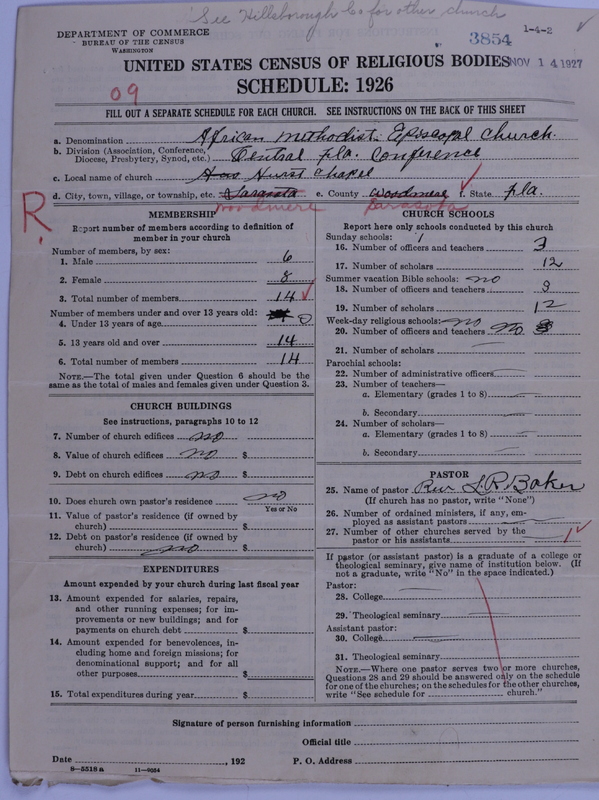 See Hillsborough Co for other church
DEPARTMENT OF COMMERCE
BUREAU OF THE CENSUS
WASHINGTON
3854
1-4-2
UNITED STATES CENSUS OF RELIGIOUS BODIES
NOV 14 1927
SCHEDULE: 1926
09
FILL OUT A SEPARATE SCHEDULE FOR EACH CHURCH. SEE INSTRUCTIONS ON THE BACK OF THIS SHEET
a. Denomination African Methodist Episcopal Church.
b. Division (Association, Conference, Diocese, Presbytery, Synod, etc.) Central fla. Conference
c. Local name of church Hurst Chapel
d. City, town, village, or township, etc. Sarasota e. County Woodmere f. State fla.
Woodmere Sarasota
R.
MEMBERSHIP
Report number of members according to definition of
member in your church
Number of members, by sex:
1. Male 6
2. Female 8
3. Total number of members 14
Number of members under and over 13 years old:
4. Under 13 years of age 0
5. 13 years old and over 14
6. Total number of members 14
NOTE.—The total given under Question 6 should be
same as the total of males and females given under Question 3.
CHURCH BUILDINGS
See instructions, paragraphs 10 to 12
7. Number of church edifices no
8. Value of church edifices no $
9. Debt on church edifices no $
10. Does church own pastor's residence no
Yes or No
11. Value of pastor's residence (if owned by
church) $
12. Debt on pastor's residence (if owned by
church) no $
EXPENDITURES
Amount expended by your church during last fiscal year
13. Amount expended for salaries, repairs,
and other running expenses; for im-
provements or new buildings; and for
payments on church debt $
14. Amount expended for benevolences, in-
cluding home and foreign missions; for
denominational support; and for all
other purposes $
15. Total expenditures during year $
CHURCH SCHOOLS
Report here only schools conducted by this church
Sunday schools: 1
16. Number of officers and teachers 3
17. Number of scholars 12
Summer vacation Bible schools: no
18. Number of officers and teachers 3
19. Number of scholars 12
Week-day religious schools: no
20. Number of officers and teachers no
21. Number of scholars
Parochial schools:
22. Number of administrative officers
23. Number of teachers—
a. Elementary (grades 1 to 8)
b. Secondary
24. Number of scholars—
a. Elementary (grades 1 to 8)
b. Secondary
PASTOR
25. Name of pastor Rev S.R. Baker
(If church has no pastor, write "None")
26. Number of ordained ministers, if any, em-
ployed as assistant pastors
27. Number of other churches served by the
pastor or his assistants 1
If pastor (or assistant pastor) is a graduate of a college or
theological seminary, give name of institution below. (If
not a graduate, write "No" in the space indicated.)
Pastor:
28. College
29. Theological seminary
Assistant pastor:
30. College
31. Theological seminary
NOTE.—Where one pastor serves two or more churches,
Questions 28 and 29 should be answered only on the schedule
for one of the churches; on the schedules for the other churches,
write "See schedule for church."
Signature of person furnishing information
Official title
Date , 192 P. O. Address
8—5518 a 11—9054